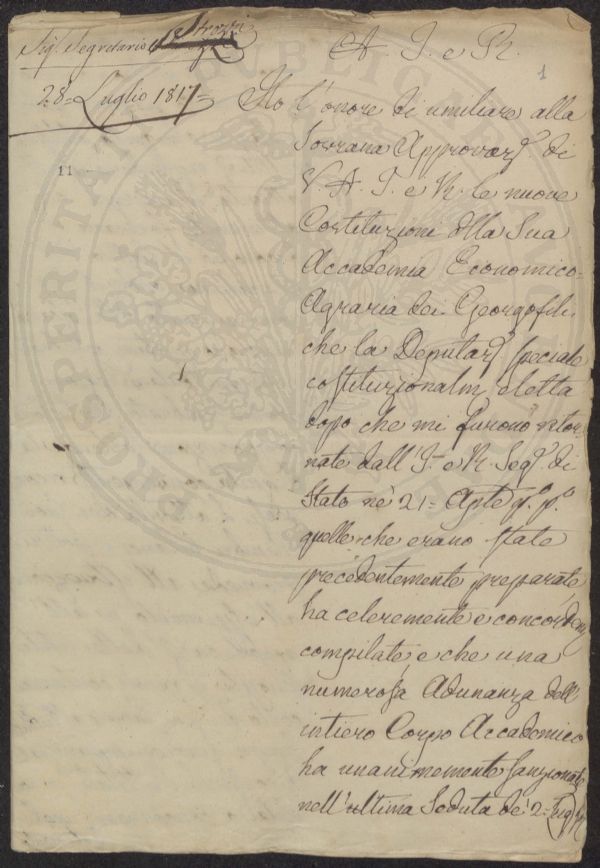 Sig.r Segretario
28= Luglio 1817=
1
11
A. I. e R.
Ho l'onore di umiliare alla
Sovrana Approvaz.e di
V. A. I. e R. le nuove
Costituzioni della Sua
Accademia Economico-
Agraria dei Georgofili
che la Deputaz.e speciale
costituzionalm. eletta
dopo che mi furono ritor-
nate dall'I. e R. Seg.a di
Stato ne' 21= Aple p.o p.o
quelle che erano state
precedentemente preparate,
ha celeremente e concordem
compilate e che una
numerosa Adunanza dell
intiero Corpo Accademico
ha unanimemente sanzionate
nell'ultima Seduta de' 2=
PROSPERITATI PUBLICAE